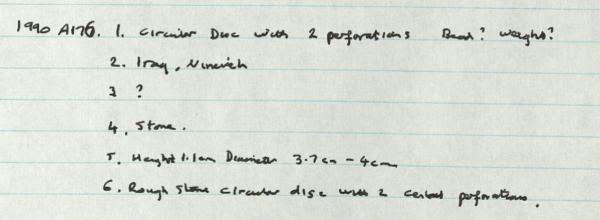 1990 A176. 1. Circular Disc with 2 perforations Bead? weight?
2. Iraq, Nineveh
3 ?
4. Stone.
5. Height 1.1cm Diameter 3.7cm - 4cm
6. Rough stone circular disc with 2 central perforations.